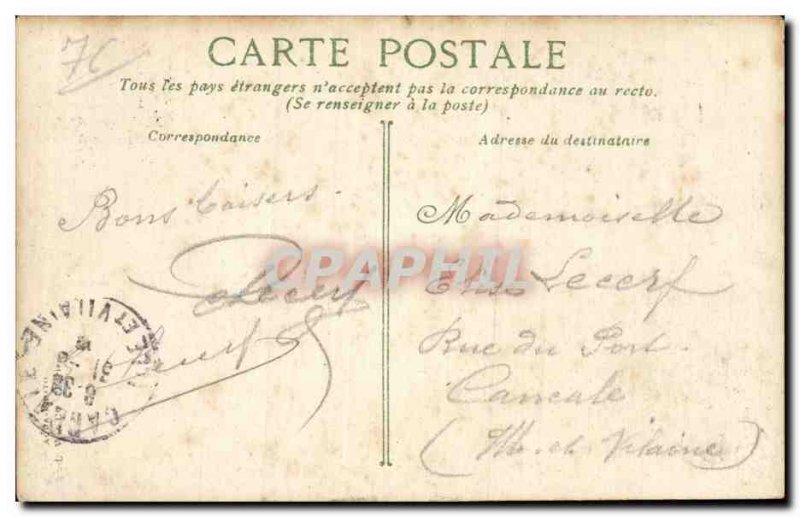 7C
CARTE POSTALE
Tous les pays étrangers n'acceptent pas la correspondance au recto.
(Se renseigner à la poste)
Correspondance
Bons baisers.
Lecerf
CPAPHIL
ET VILAINE
Adresse du destinataire
Mademoiselle
Elise Lecerf
Rue du Port
Cancale
(Ille et Vilaine)